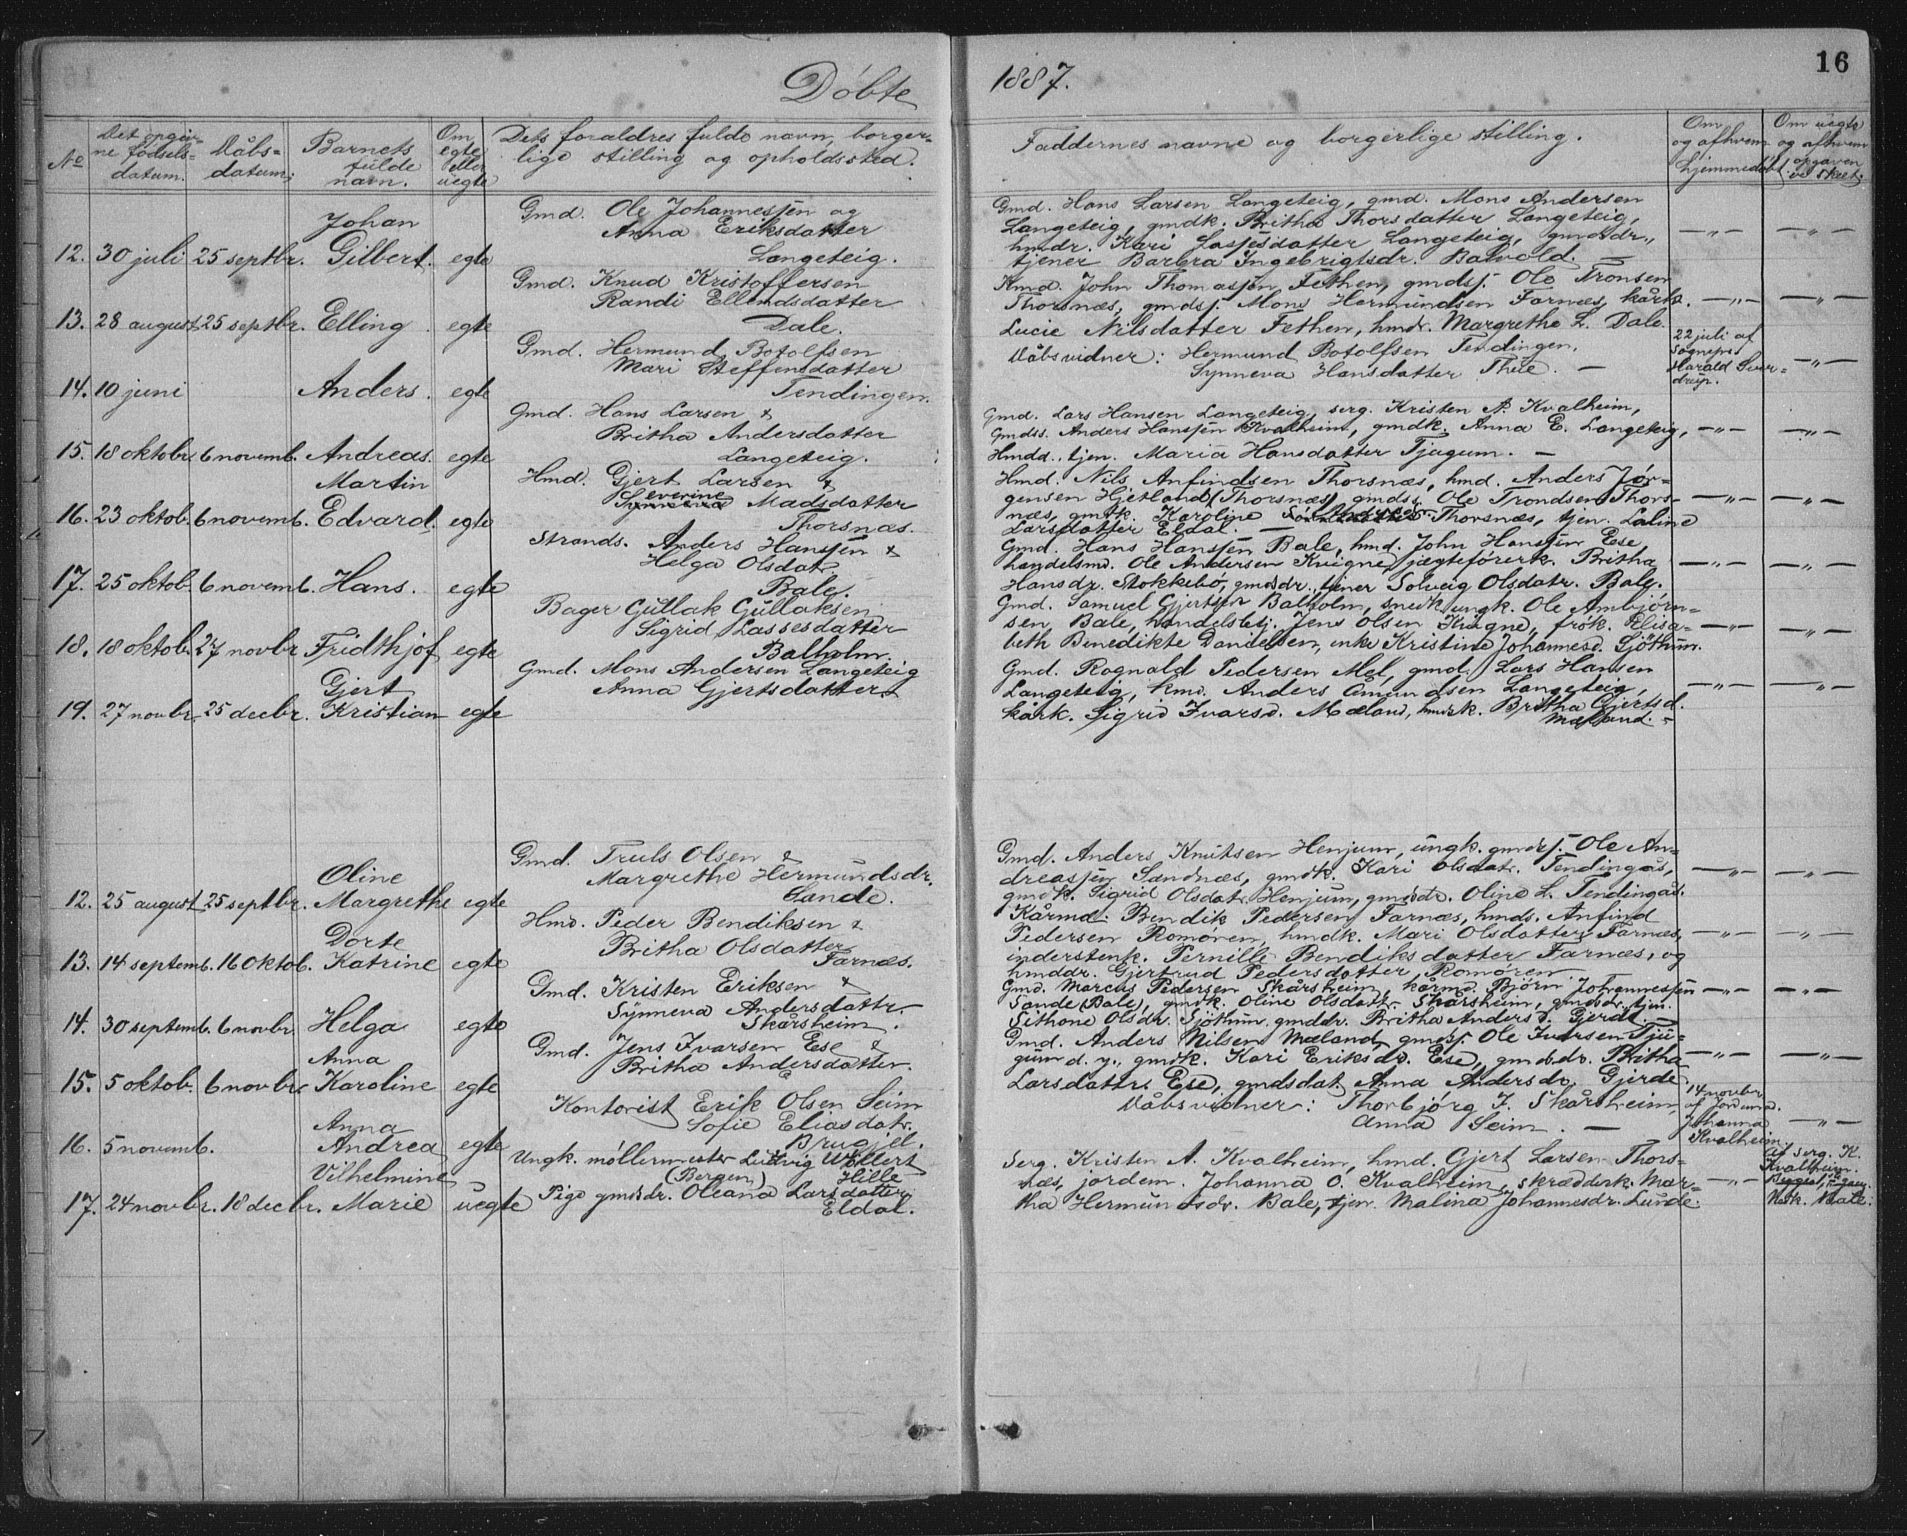 Døbte
1887.
16
No
Det opgiv-
ne fødsels-
datum.
Dåbs-
datum;
Barnets
fulde
navn.
Om
egte
eller
uegte
Dets foraldres fulde navn, borger-
lige stilling og opholdssted.
Faddernes navne og borgerlige stilling.
Om
og afhvem
hjemmedøbt.
Om uegte
og afhvem
opgaven
er skeet.
12. 30 juli 25 septbr. Johan
Gilbert. egte
Gmd. Ole Johannesjen og
Anna Eriksdatter
Langeteig.
Gmd. Hans Larsen Langeteig, gmd. Mons Andersen
Langeteig, gmdk. Britha Thorsdatter Langeteig,
hmdr. Kari Lasjesdatter Langeteig, gmdsdr.,
tjener Barbra Ingebrigtsdr. Balvold. —
—„— —„—
13. 28 august 25 septbr. Elling. egte
Gmd. Knud Kristoffersen
Randi Ellendsdatter
Dale.
Kmd. John Thomasjen Fethen, gmdsj. Ole Tronsen
Thorsnæs, gmdsj. Mons Hermundsen Farnæs, kårk.
Lucie Nilsdatter Fethen, hmdr. Margrethe L. Dale.
—„— —„—
14. 10 juni Anders. egte
Gmd. Hermund Botolfsen
Mari Steffensdatter
Tendingen.
Dåbsvidner: Hermund Botolfsen Tendingen,
Synneva Hansdatter Thue. —
22 juli af
Sognepr.
Harald Sver-
drup.
—„—
15. 18 oktobr. 6 novemb. Andreas. egte
Gmd. Hans Larsen &
Britha Andersdatter
Langeteig.
Gmd. Lars Hansen Langeteig, serg. Kristen A. Kvalheim,
Gmdss. Anders Hansjen Kvalheim, gmdk. Anna E. Langeteig,
Hmdd., tjen. Maria Hansdatter Tjugum. —
—„— —„—
16. 23 oktob. 6 novemb. Martin
Edvard. egte
Hmd. Gjert Larsen &
Severine
Synneva Madsdatter
Thorsnæs.
Hmd. Nils Anfindsen Thorsnæs, hmd. Anders Jør-
gensen Hjetland (Thorsnæs), gmdss. Ole Trondsen Thors-
næs, gmdk. Karoline Thorsnæs, tjen. Laline
Larsdatter Eldal. —
—„— —„—
17. 25 oktob. 6 novemb. Hans. egte
Strands. Anders Hansjen &
Helga Olsdatr.
Bale.
Gmd. Hans Hansjen Bale, hmd. John Hansjen Ese,
handelsmd. Ole Andersen Kvigne, jægteførerk. Britha
Hansdr. Stokkebø, gmdsdr., tjener Solveig Olsdatr. Bale.
—„— —„—
18. 18 oktob. 27 novbr. Fridthjof egte
Bager Gullak Gullaksen
Sigrid Lassesdatter
Balholm.
Gmd. Samuel Gjertsen Balholm, snedk. ungk. Ole Ambjörn-
sen Bale, handelsbetj. Jens Olsen Kvigne, frøk. Elisa-
beth Benedikte Danielsen, enke Kristine Johannesd. Sjöthun.
—„— —„—
19. 27 novbr. 25 decbr. Gjert
Kristian egte
Gmd. Mons Andersen Langeteig
Anna Gjertsdatter
Gmd. Rognald Pedersen Mel, gmd. Lars Hansen
Langeteig, kmd. Anders Amundsen Langeteig,
kårk. Sigrid Ivarsd. Mæland, hmdsk. Britha Gjertsd.
Mæland. —
—„— —„—
12. 25 august 25 septbr. Oline
Margrethe egte
Gmd. Truls Olsen &
Margrethe Hermundsdr.
Sande.
Gmd. Anders Knutsen Henjum, ungk. gmdsj. Ole An-
dreasjen Sandnæs, gmdk. Kari Olsdatr. Tendingås,
gmdk. Sigrid Olsdatr. Henjum, gmdsdr. Oline L. Tendingås.
—„— —„—
13. 14 septemb. 16 oktob. Dorte
Katrine egte
Hmd. Peder Bendiksen &
Britha Olsdatter
Farnæs.
Kårmd. Bendik Pedersen Farnæs, hmds. Anfind
Pedersen Romøren, hmdk. Mari Olsdatter Farnæs,
inderstenk. Pernille Bendiksdatter Farnæs, og
hmddr. Gjertrud Pedersdatter, Romøren
—„— —„—
14. 30 septemb. 6 novbr. Helga egte
Gmd. Kristen Eriksen &
Synneva Andersdattr.
Skarsheim.
Gmd. Marcus Pedersen Skårsheim, kårmd. Björn Johannesjen
Sande (Bale), gmdk. Oline Olsdatr. Skårsheim, gmdsdr. tjen.
Sithone Olsdr. Sjöthun, gmddr. Britha Andersd. Gjerde. —
—„— —„—
15. 5 oktob. 6 novbr. Anna
Karoline egte
Gmd. Jens Ivarsen Ese &
Britha Andersdatter.
Gmd. Anders Nilsen Mæland, gmdsj. Ole Iversen Tju-
gum d. y., gmdk. Kari Eriksdr. Ese, gmdsdr. Britha
Larsdatter Ese, gmdsdat. Anna Andersdr. Gjerde.
—„— —„—
16. 5 novemb. Anna
Andrea egte
Kontorist Erik Olsen Seim
Sofie Eliasdatr.
Brugjel.
Dåbsvidner: Thorbjørg J. Skårsheim,
Anna Seim. —
14 novbr.
af Jordmd.
Johanna
Kvalheim.
—„—
17. 24 novbr. 18 decbr. Vilhelmine
Marie uegte
Ungk. møllermester Ludvig Wollert
(Bergen) Hille
Pige gmdsdr. Oleana Larsdatter
Eldal.
Serg. Kristen A. Kvalheim, hmd. Gjert Larsen Thors-
næs, jordem. Johanna O. Kvalheim, skrædderk. Mar-
tha Hermundsdr. Bale, tjen. Malina Johannesdr. Lunde.
—„—
Af Serg. K.
Kvalheim.